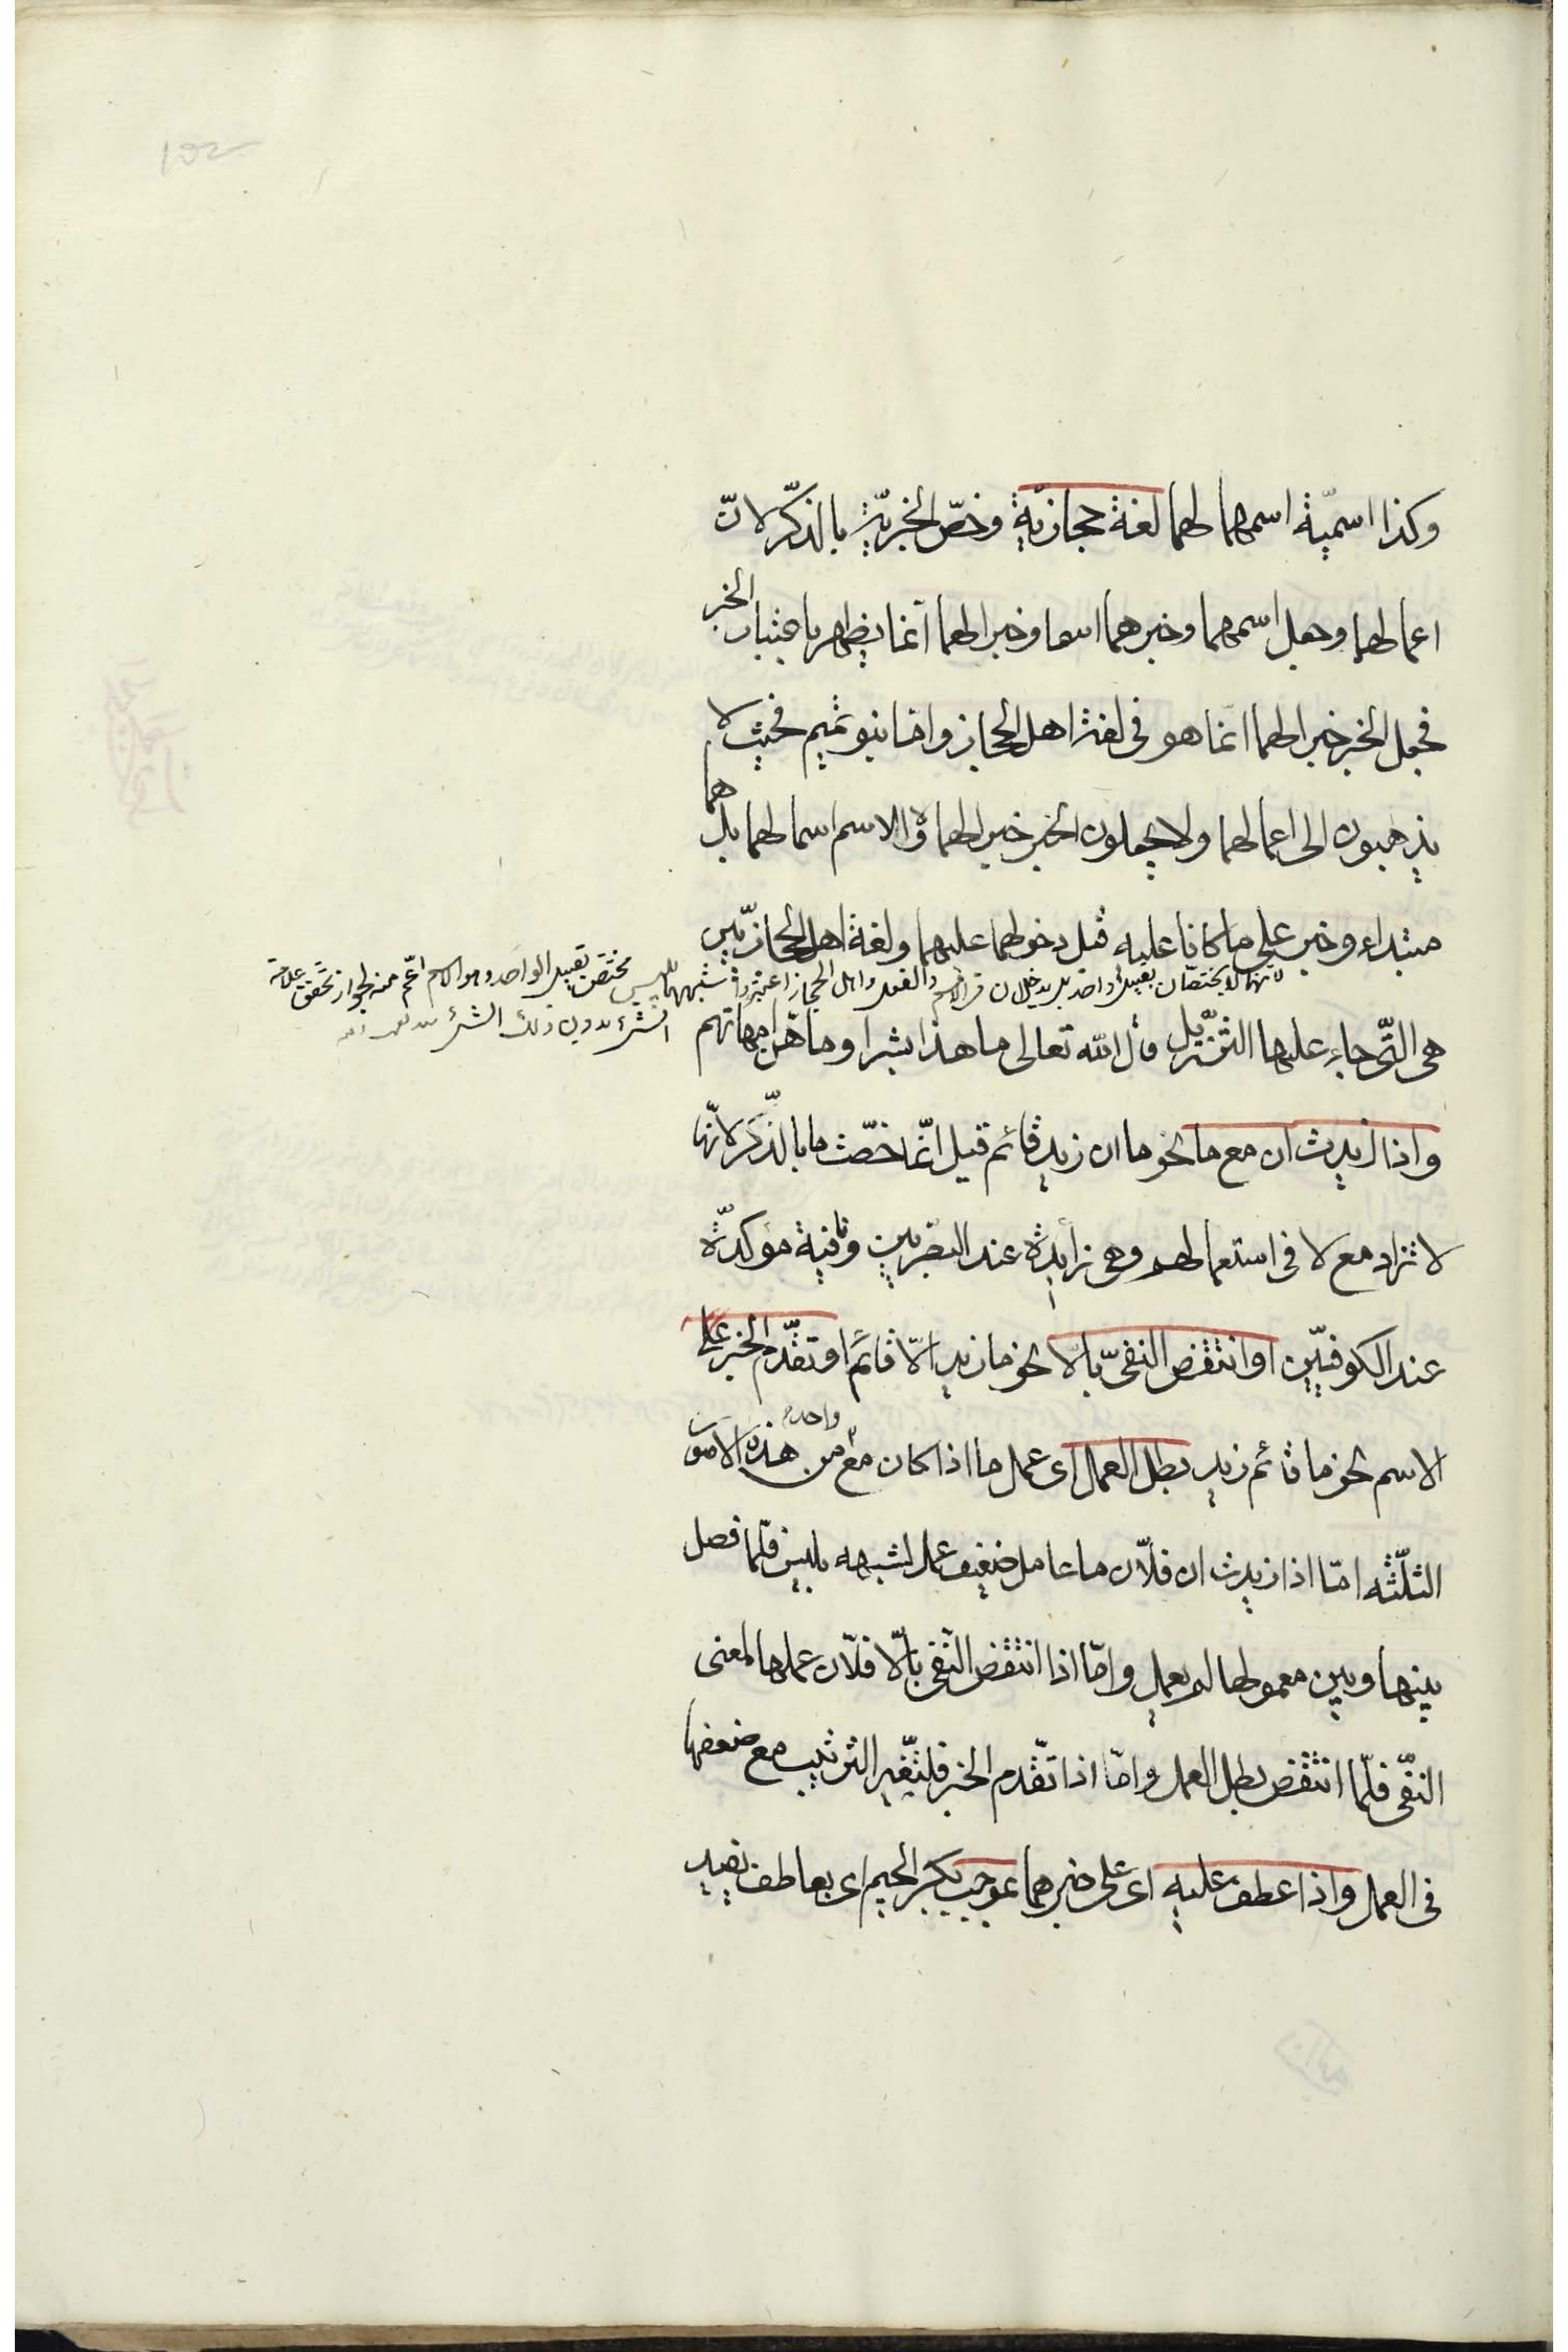 وكذا اسميّة اسمهما لهما لغة حجازيّة وخصّ الخبريّة بالذكّر لانّ
اعمالهما وجعل اسمهما وخبرهما اسما وخبرا لهما انّما يظهر باعتبار الخبر
فجعل الخبر خبرا لهما انّما هو فى لغة اهل الحجاز وامّا بنو تميم فحيث لا
يذهبون الى اعمالهما ولا يجعلون الخبر خبرا لهما ولا الاسم اسما لهما بل هما
مبتداء وخبر على ما كانا عليه قبل دخولهما عليهما ولغة اهل الحجازيّين
لانهما لا يختصّان بقبيل واحد بل يدخلان على الاسم والفعل واهل الحجاز اعتبروا شبههما بليس
مختصّ بقبيل الواحد وهو الاسم اعّم منه لجواز تحقق علامة
الشئ بدون ذلك الشئ
هى الّتى جاء عليها التنزيل قال الله تعالى ما هذا بشرا وما هنّ امهاتهم
واذا زيدت ان مع ما نحو ما ان زيد قائم قيل انّما خصّت ما بالذّكر لانّها
لا تزاد مع لا فى استعمالهم وهى زائدة عند البصريين ونافية مؤكدّة
عند الكوفيّين او انتقض النفىّ بالّا نحو ما زيد الّا قائم او تقدّم الخبر على
الاسم نحو ما قائم زيد بطل العمل اى عمل ما اذا كان مع واحد من هذه الامور
الثلّثه امّا اذا زيدت ان فلّان ما عامل ضعيف عمل لشبهه بليس فلّما فصل
بينها وبين معمولها لم يعمل وامّا اذا انتقض النّفى بالّا فلّان عملها لمعنى
النّفى فلّما انتقض بطل العمل وامّا اذا تقّدم الخبر فلتغّير الترتيب مع ضعفها
فى العمل واذا عطف عليه اى على خبرهما بموجب بكسر الجيم اى بعاطف يفيد